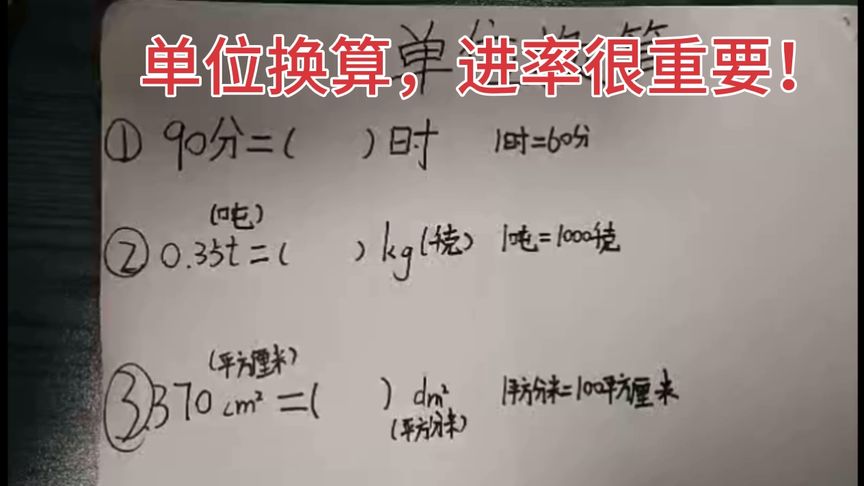 单位换算，进率很重要！
① 90分=(  )时  1时=60分
(吨)
② 0.35t=(  )kg(千克)  1吨=1000千克
(平方厘米)
③ 370cm²=(  )dm²  1平方分米=100平方厘米
(平方分米)